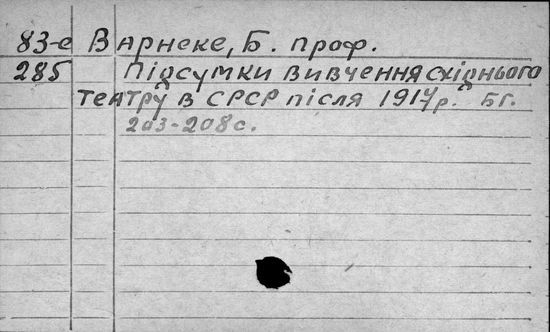 83-е Варнеке, Б. проф.
285 Підсумки вивчення східнього
театру в СРСР після 1917р. Бг.
203-208с.